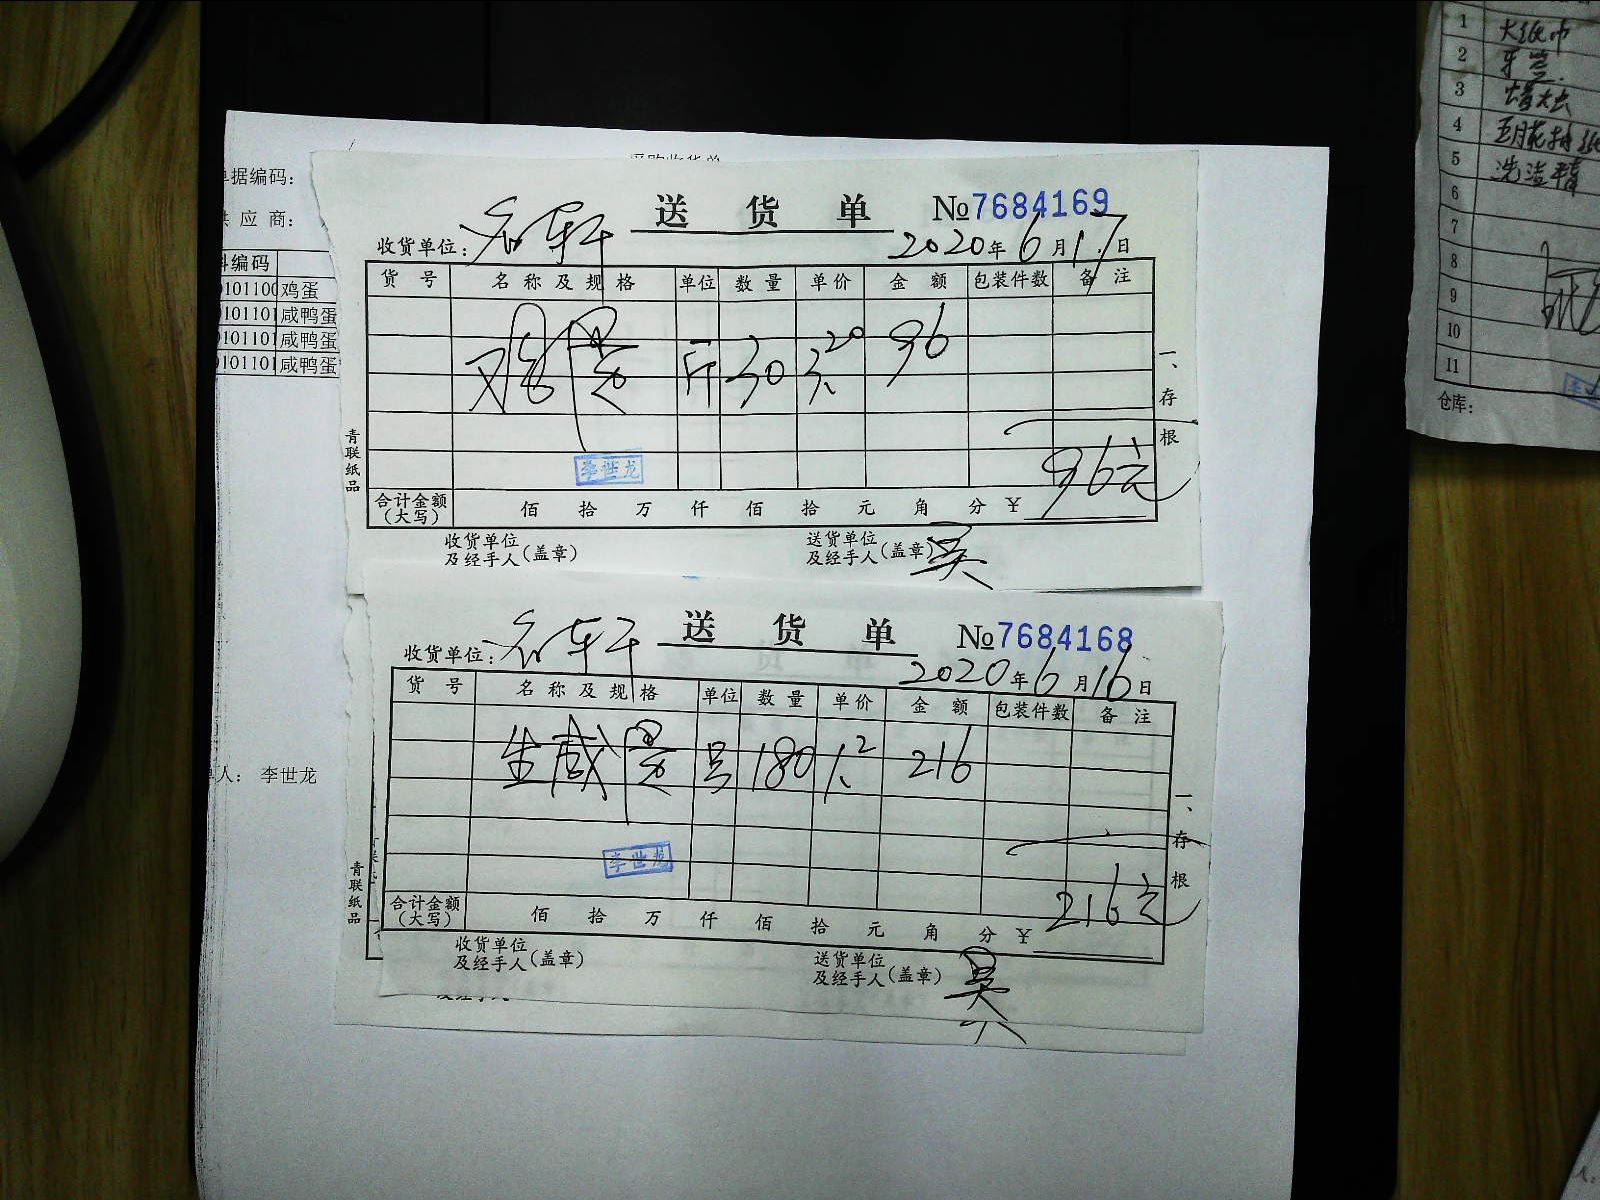 单据编码：
供应商：
料编码
0101100 鸡蛋
0101101 咸鸭蛋
0101101 咸鸭蛋
0101101 咸鸭蛋
单人： 李世龙
送货单 №7684169
收货单位： 2020年6月17日
货号 名称及规格 单位 数量 单价 金额 包装件数 备注
鸡蛋 斤 30 3.20 96
96元
李世龙
合计金额（大写） 佰 拾 万 仟 佰 拾 元 角 分 ¥
收货单位及经手人（盖章） 送货单位及经手人（盖章） 吴
青联纸品
一、存根
送货单 №7684168
收货单位： 2020年6月16日
货号 名称及规格 单位 数量 单价 金额 包装件数 备注
生咸蛋 只 180 1.2 216
李世龙
216元
合计金额（大写） 佰 拾 万 仟 佰 拾 元 角 分 ¥
收货单位及经手人（盖章） 送货单位及经手人（盖章） 吴
青联纸品
一、存根
1 大纸巾
2 牙签
3
4
5 洗洁精
6
7
8
9
10
11
仓库：